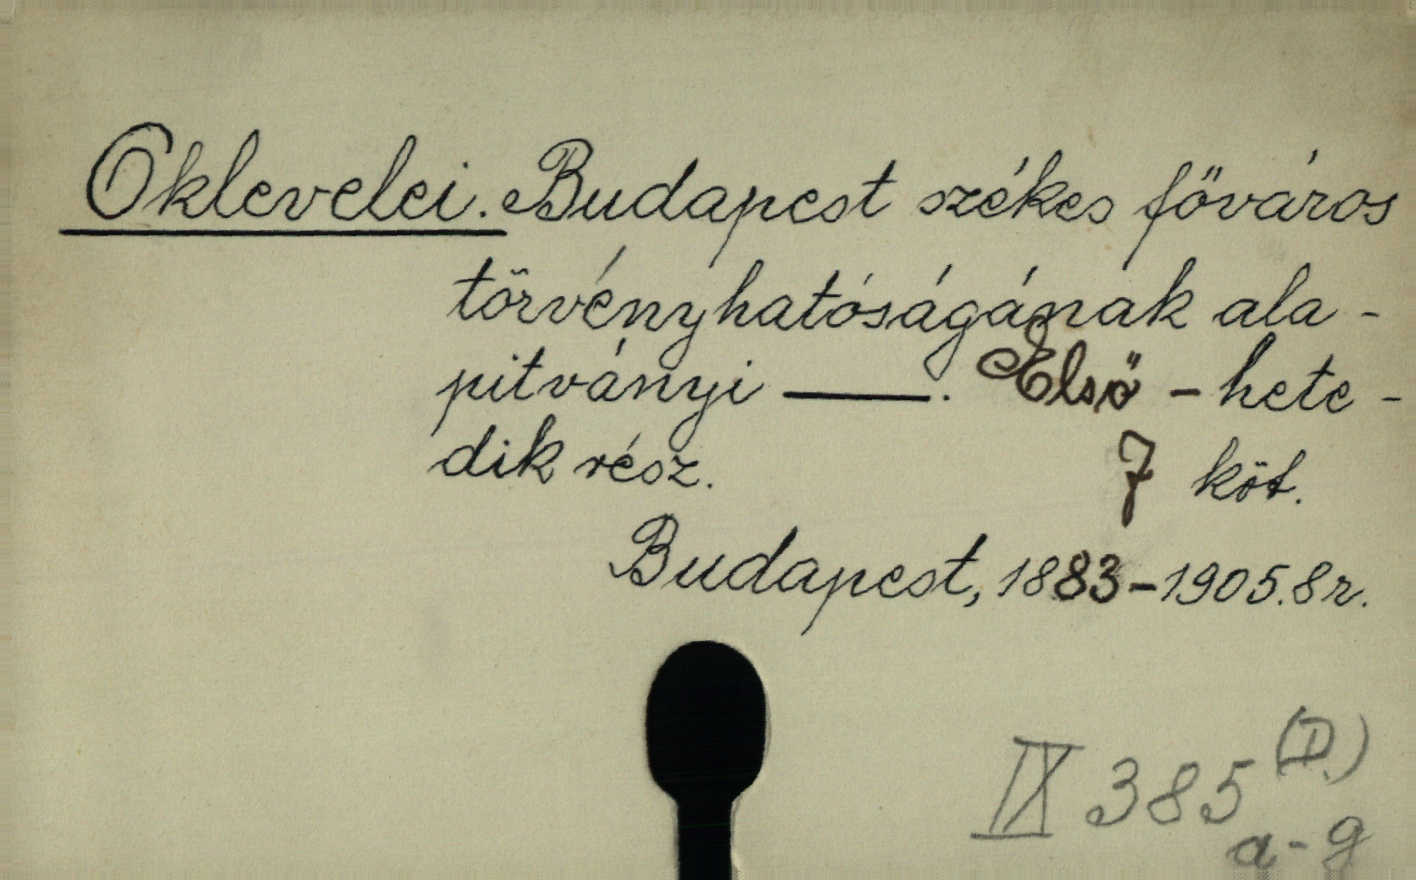 Oklevelei. Budapest székes főváros
törvényhatóságának ala-
pitványi ——. Első - hete-
dik rész. 7 köt.
Budapest, 1883-1905. 8r.
IX 385 (D.)
a-g